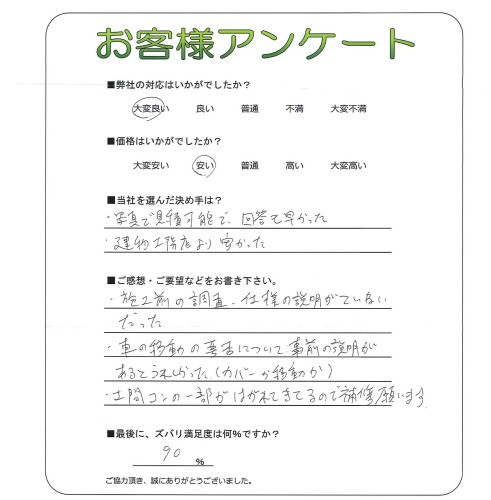 お客様アンケート
■弊社の対応はいかがでしたか？
大変良い 良い 普通 不満 大変不満
■価格はいかがでしたか？
大変安い 安い 普通 高い 大変高い
■当社を選んだ決め手は？
・写真で見積可能で、回答も早かった
・建物工務店より安かった
■ご感想・ご要望などをお書き下さい。
・施工前の調査、仕様の説明がていねい
だった
・車の移動の要否について事前の説明が
あるとうれしかった(カバーか移動か)
・土間コンの一部がはがれてきてるので補修願います
■最後に、ズバリ満足度は何％ですか？
90 ％
ご協力頂き、誠にありがとうございました。